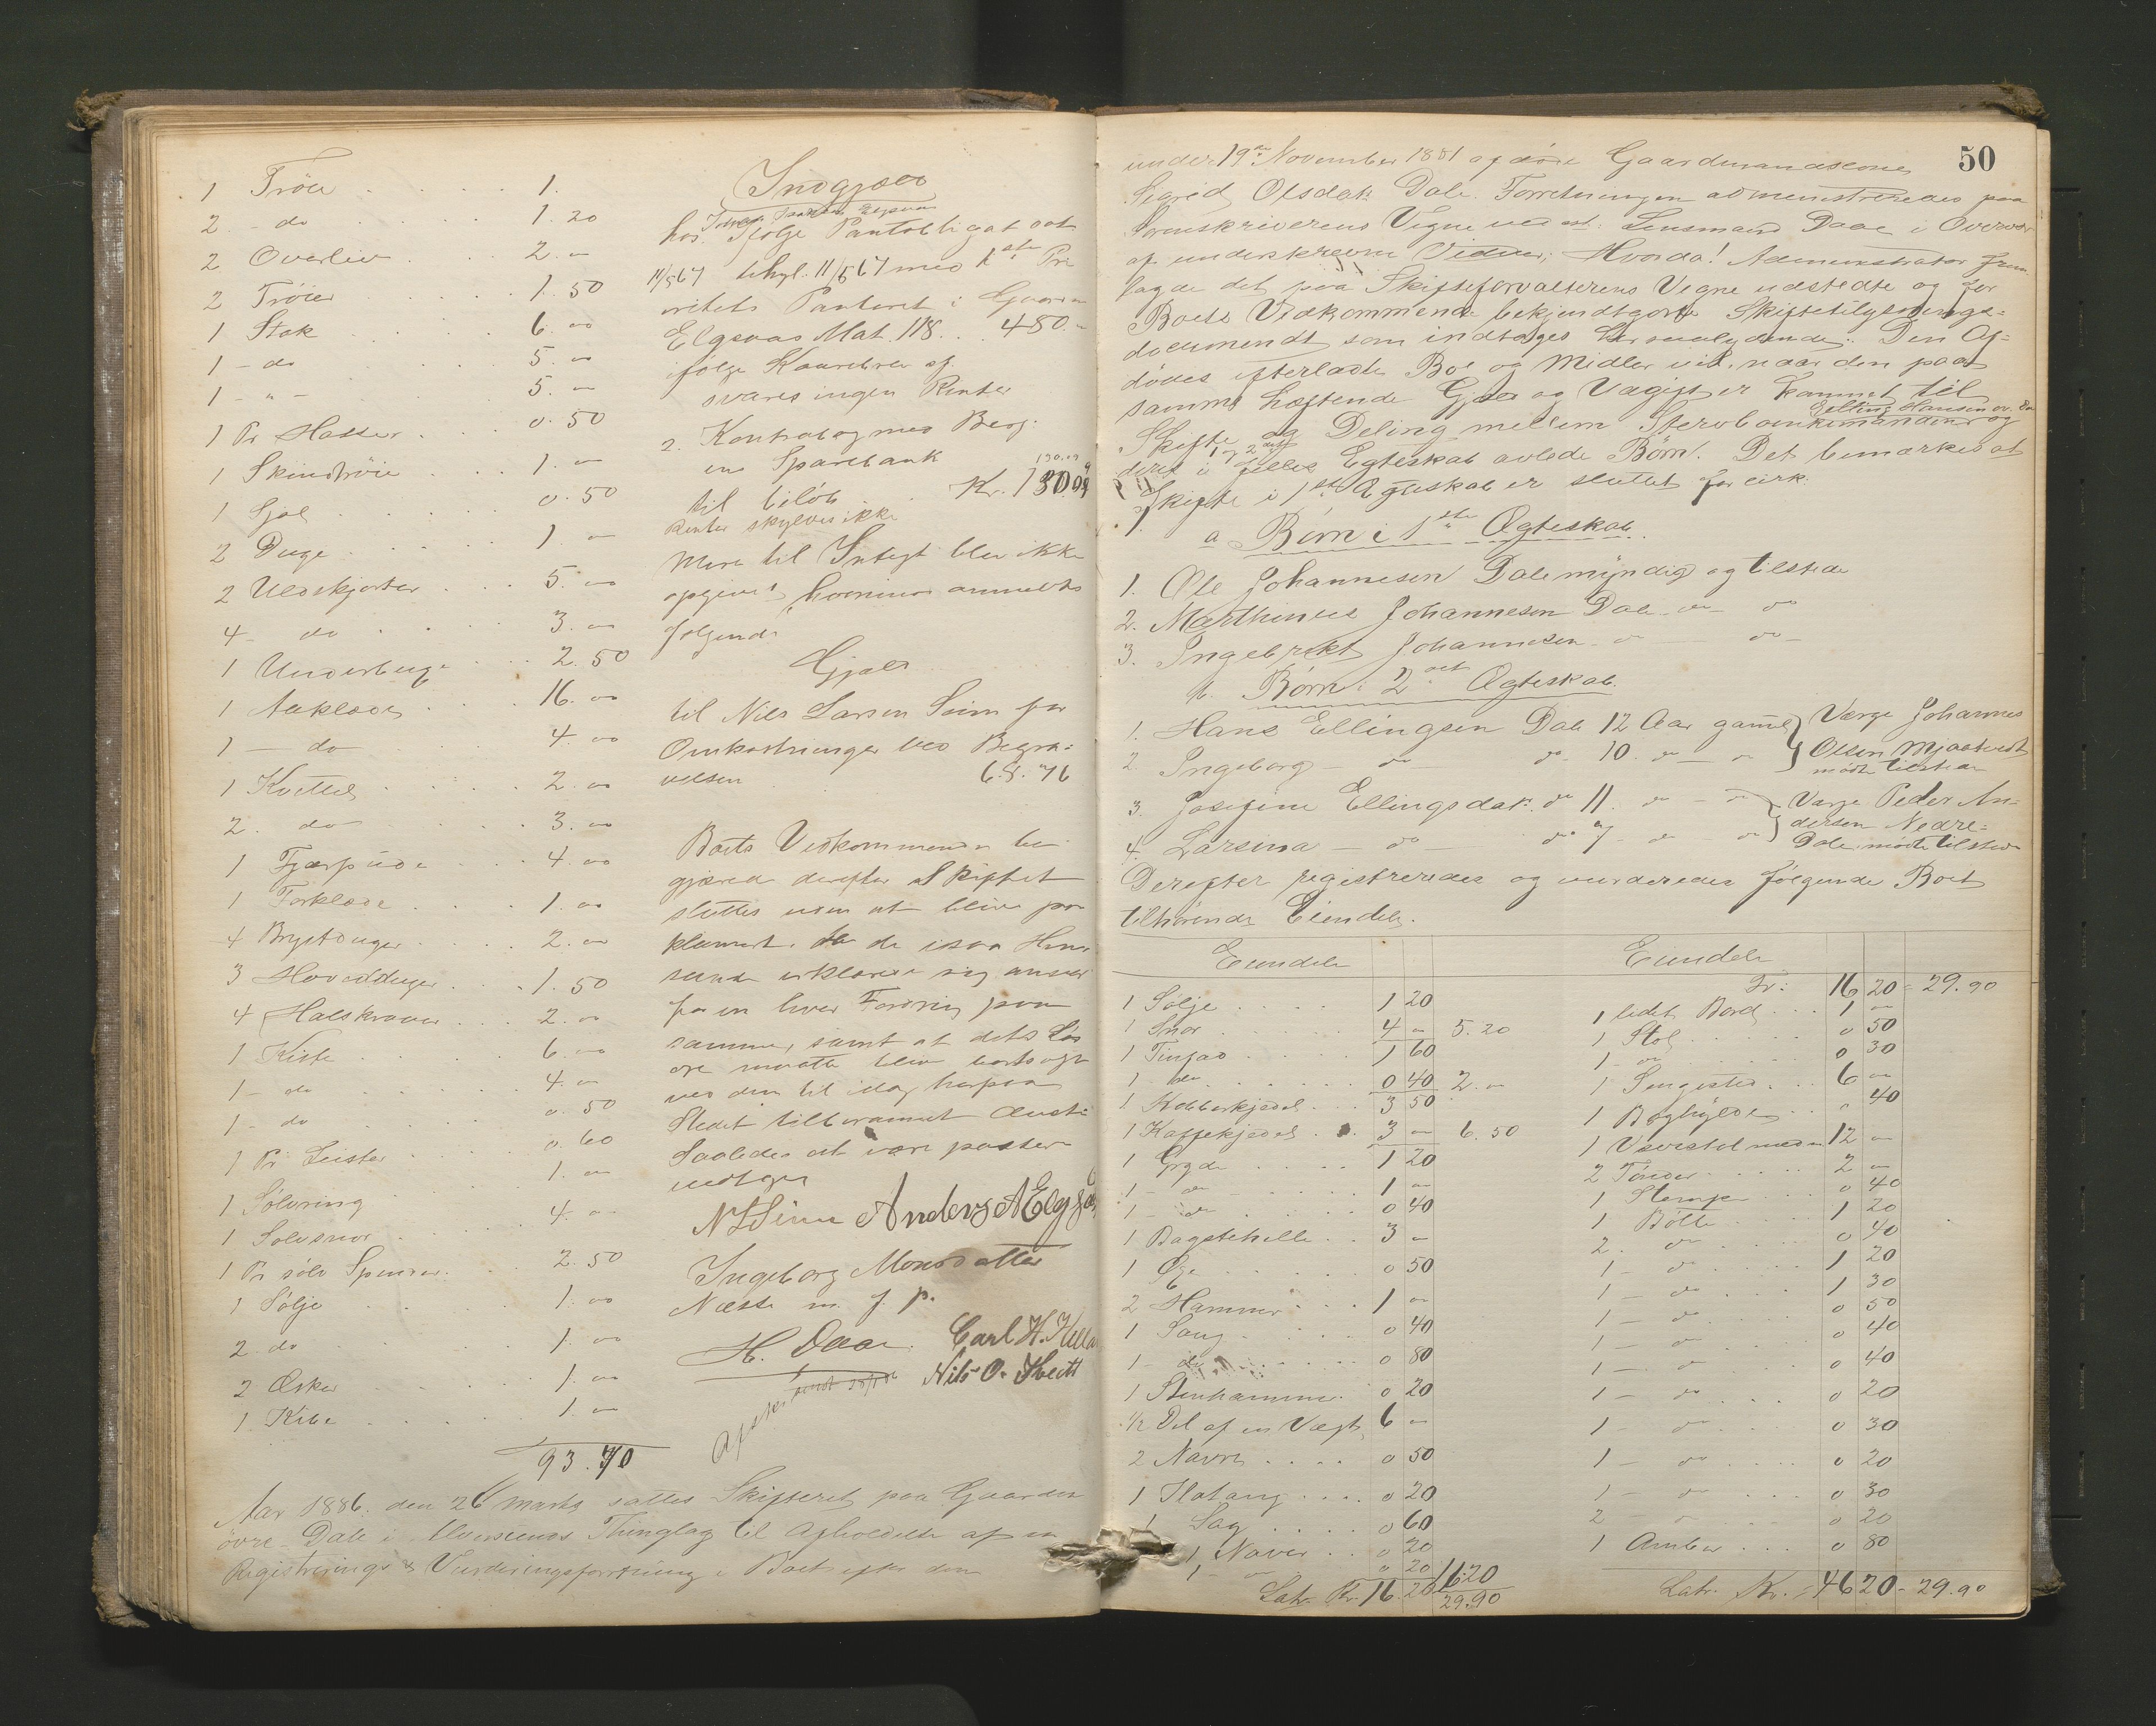 1 Tröie . . . . 1.
2 - do . . . . 1. 20
2 Overliv . . . 2. "
2 Tröier . . . . 1. 50
1 Stak . . . . 6. oo
1 - do . . . . 5. "
1 - " - . . . . 5. "
1 Pr Hoser . . . 0. 50
1 Skindtröie . . . 1. "
1 Sjal . . . . 0. 50
2 Duge . . . . 1 "
2 Uldskjorter . . . 5. oo
4 - do . . . . 3. "
1 Underbuxe . . . 2. 50
1 Aaklæde . . . 16. oo
1 - do . . . . 4. oo
1 Kvittel . . . . 2. oo
2. do . . . . 3. oo
1 Fjærpude . . . 4. oo
1 Forklæde . . . 1. oo
4 Brystduger . . . 2. oo
3 Hovedduger . . . 1. 50
4 Halskraver . . . 2. "
1 Kiste . . . . 6. oo
1 - do . . . . 4. "
1 - do . . . . 0. 50
1 Pr Leister . . . 0. 60
1 Sölvring . . . 1. "
1 Sölvsnor . . . 4. "
1 Pr sölv Spender . . 2. 50
1 Sölje . . . . 1. oo
2 do . . . . 1. oo
2 Æsker . . . . 1. oo
1 Kibe . . . . 1. "
93. 70
Indgjæld
hos Ifölge Pantobligat dat
11/5 67 tingl. 11/5 67 med 1ste Pri
oritets Panteret i Gaarden
Elgsaas Mat. 118 . . 450. "
ifölge Kaarebrev af.
svares ingen Renter
2. Kontrabog med Berg.
ens Sparebank
til beløb . . Kr. 130.09
Renter skyldes ikke
Mere til Indtægt blev ikke
opgivet, hvorimod anmeldtes
følgende
Gjæld
til Nils Larsen Seim for
Omkostninger ved Begra-
velsen 68. 76
Boets Vedkommende be-
gjærede derefter Skiftet
sluttet uden at blive pro
klameret, da de i saa Hen-
seende erklærede sig ansvar
for en hver Fordring paa
samme, samt at dets Løs
øre maatte blive bortsolgt
ved den til idag herpaa
Stedet tilberammet Auction
Saaledes at være passeret
vedtages
N L Seim Anders A Elgsaa
Ingeborg Monsdatter
Næsse m. f. p.
H. Daae. Carl H. Hella
Nils O. Hectt
Aar 1886. den 26 Marts sattes Skifteret paa Gaarden
övre Dale i Thinglag til Afholdelse af en
Registrerings & Vurderingsforretning i Boet efter den
50
under 19de November 1881 afdöde Gaardmandskone
Sigrid Olsdatr Dale. Forretningen administreredes paa
Sorenskriverens Vegne ved Lensmand Daae i Overvær
af underskrevne Vidner; Hvorda! Administrator frem-
lagde det paa Skifteforvalterens Vegne udstedte og for
Boets Vedkommende bekjendtgjorte Skiftetilsynings-
document som indtages saalydende. Den Af-
dödes efterladte Boe og Midler vil, naar den paa
samme hæftende Gjeld og Udgift er kommet til
Skifte og Deling mellem Sterbo enkemanden Elling Hansen og
deres i 1 og 2 det fælles Egteskab avlede Börn. Det bemærkes at
Skifte i 1ste Ægteskab er sluttet for cirk.
a Börn i 1ste Ægteskab
1. Ole Johannesen Dale myndig og tilstede
2. Marthinus Johannesen Dale do do
3. Ingebrikt Johannesen do - do -
b. Börn i 2det Ægteskab.
1. Hans Ellingsen Dale 12 Aar gaml } Værge Johannes
2. Ingeborg - do - do 10. do - do } Olsen Mjaatvedt
mödte tilstede
3. Josefine Ellingsdatr. do 11. do - do } Værge Peder An-
4. Larsina - do - do 7 do - do } dersen Nedre-
Dale mödte tilstede
Derefter registreredes og vurderedes fölgende Boet
tilhörende Eiendele.
Eiendele
1 Sölje . . . 1 20
1 Snor . . . 4 " 5. 20
1 Tinfad . . . 1 60
1 do . . . 0 40 2. "
1 Kobberkjedel . . 3 50
1 Kaffekjedel . . 3 " 6. 50
1 Gryde . . . 1 20
1 - do . . . 1 "
1 - do . . . 0 40
1 Bagstehelle . . 3 "
1 Øxe . . . 0 50
2 Hammer . . . 1 "
1 Tang . . . 0 40
1 do . . . 0 80
1 Stenhammer . 0 20
1/2 Del af en Vægt 6 "
2 Navre . . . 0 50
1 Iltang . . . 0 20
1 Sag . . . 0 60
1 Naver . . 0 20
1 - do . . . 0 20 16.20
Latr. Kr. 16. 20 29.90
Eiendele
Tr: 16 20 - 29. 90
1 lidet Bord . . . 1 "
1 Stol . . . 0 50
1 - do . . . 0 30
1 Sengested . . . 6 "
1 Boghylde . . . " 40
1 Vævstol med 12 "
2 Tönder . . . 2 "
1 Stamp . . . 0 40
1 Bötte . . . 1 20
2. do . . . 0 40
1 - do . . . 1 20
1 - do . . . 1 30
1 - do . . . 0 50
1 - do . . . 0 40
1 - do . . . 0 40
1 - do . . . 0 20
1 - do . . . 0 30
1 - do . . . 0 20
1 - do . . . 0 30
2 - do . . . 0 20
1 Ambar . . . 0 80
Latr. Kr. 46 20 - 29. 90